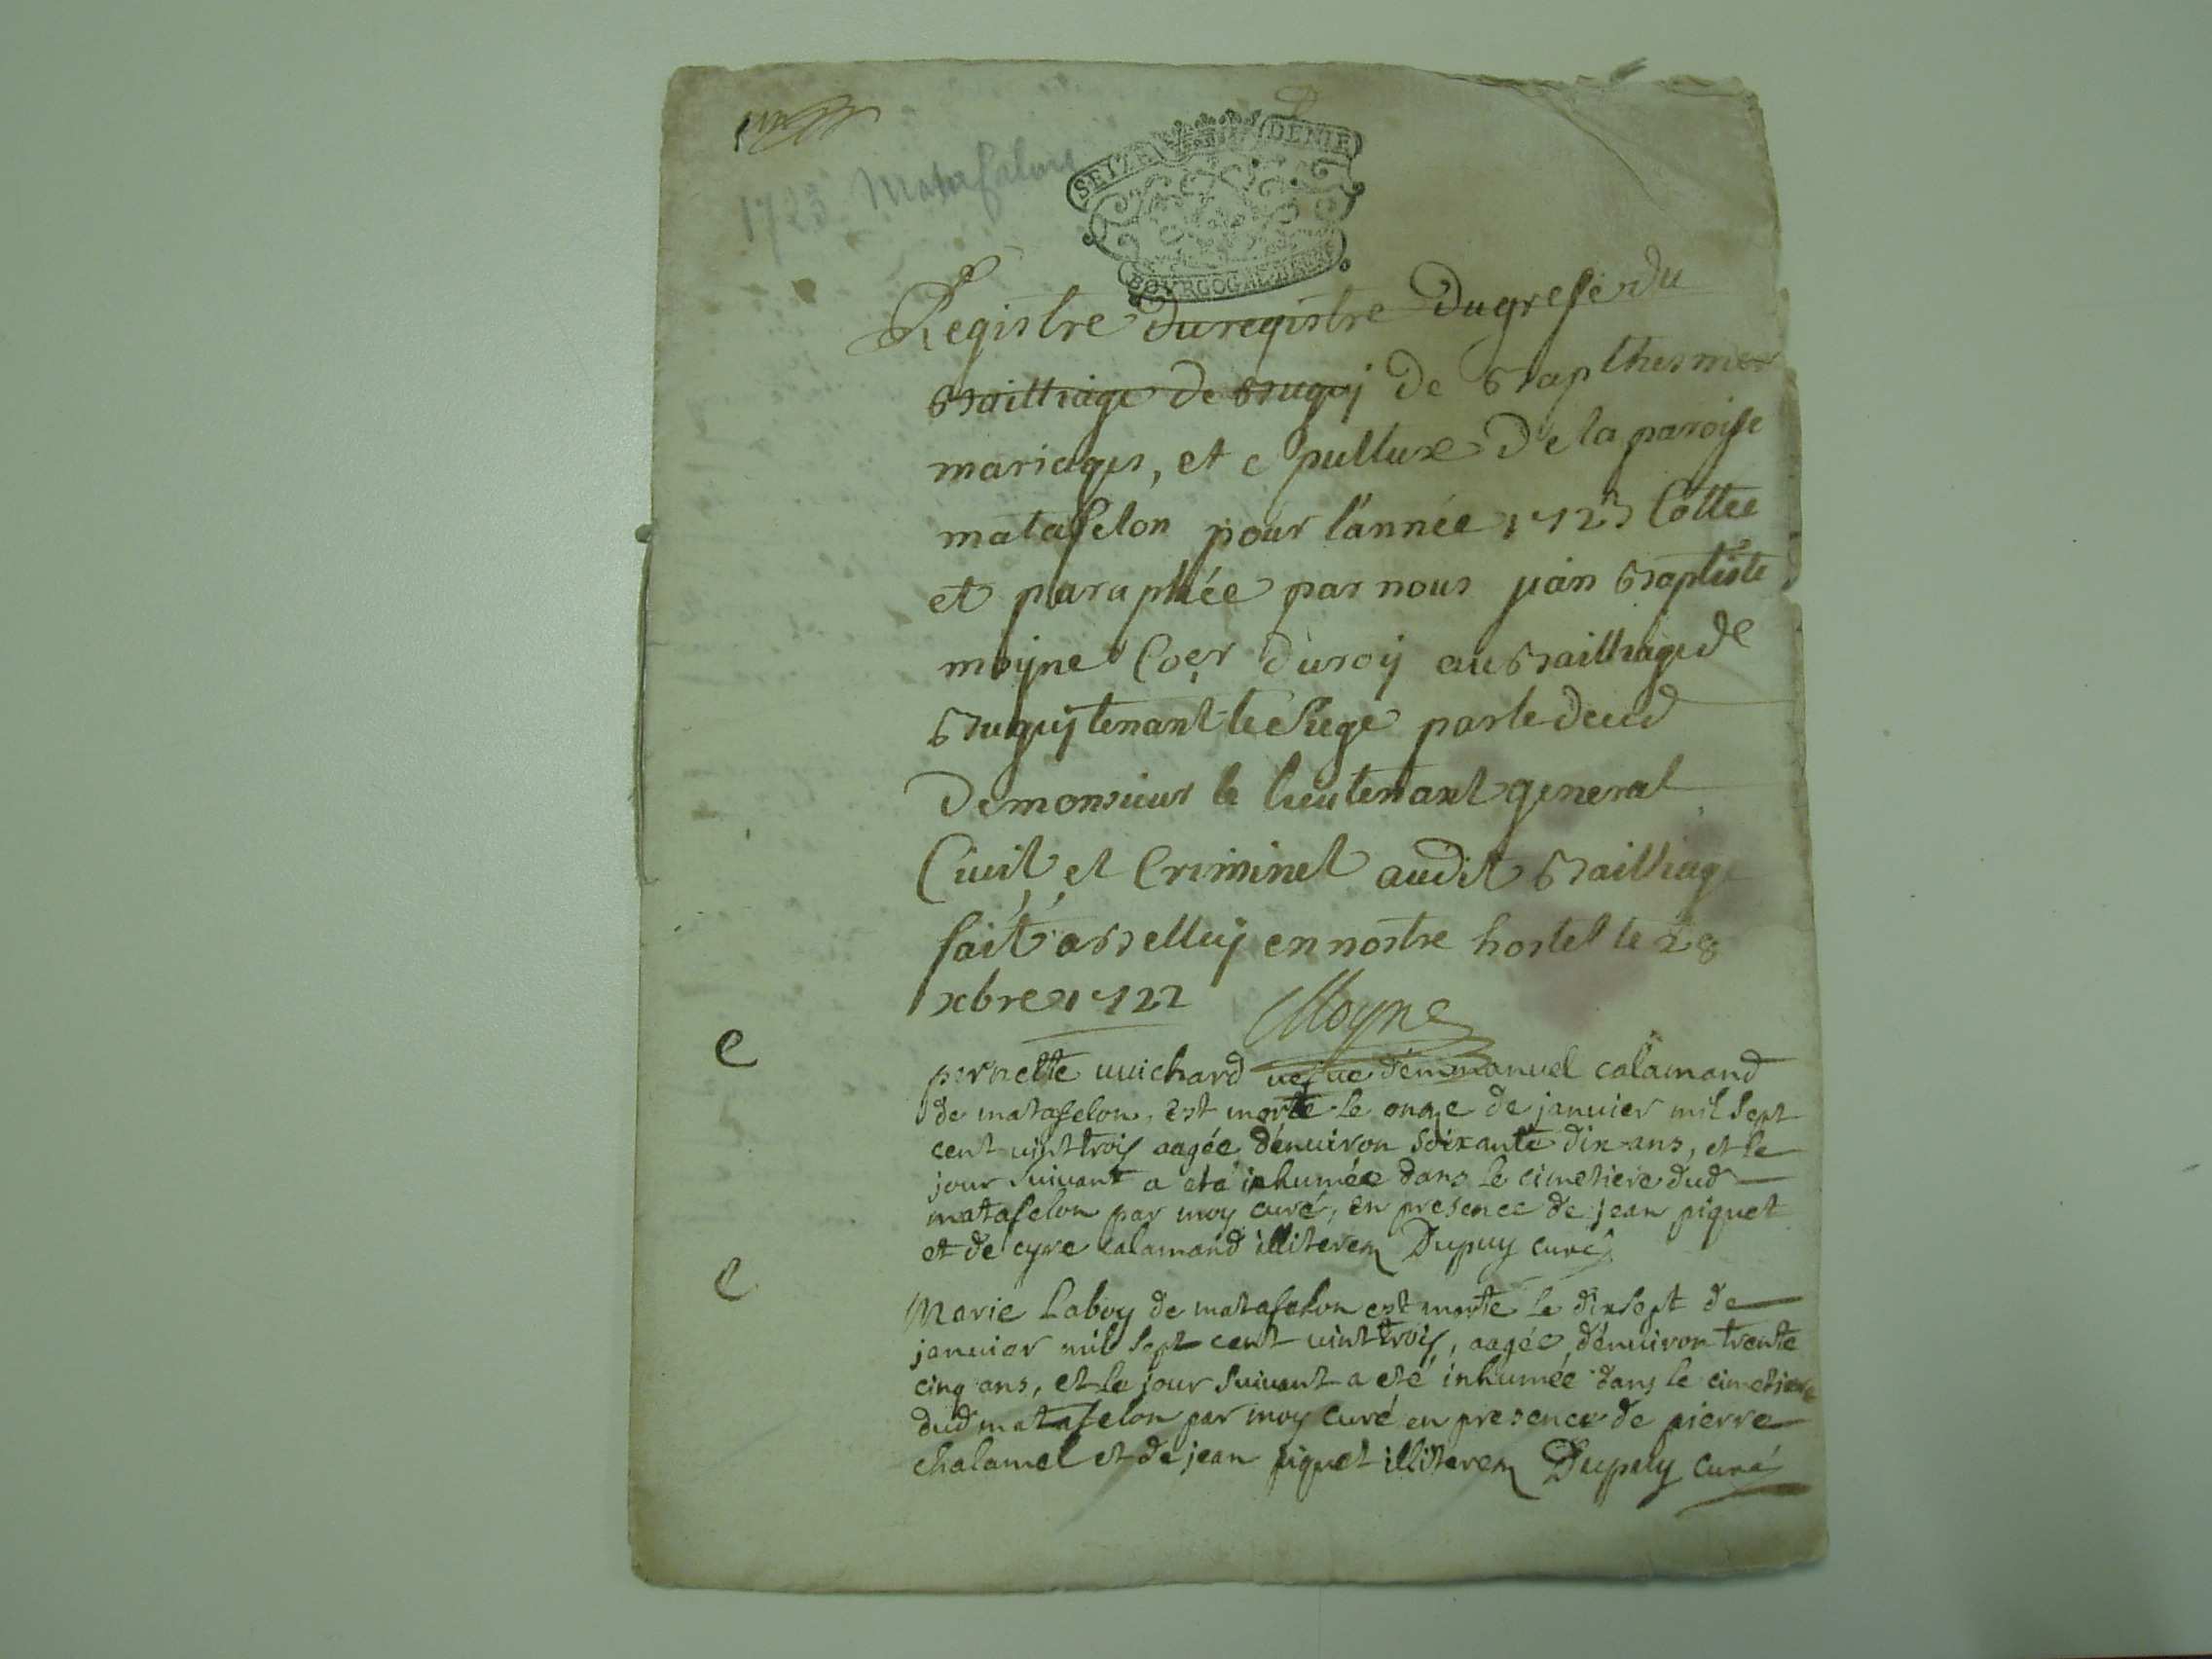 1723 Matafalon
SEIZE DENIE
BOURGOG
Registre du registre du grefe du
Bailliage de Bugey de Bapthesmes
mariages, et c pulture de la paroisse
matafelon pour l'année 1723 Cottée
et paraphée par nous jean Baptiste
moyne Coer du roy au Bailliage de
Bugey tenant le siege par le deced
de monsieur le lieutenant general
Civil et Criminel audit Bailliage
fait a Belley en nostre hostel le 28
xbre 1722 Moyne
e
pernette vuichard vefve d'emmanuel calamand
de matafelon, est morte le onze de janvier mil sept
cent vint trois aagée d'environ soixante dix ans, et le
jour suivant a eté inhumée dans le cimetiere dud
matafelon par moy curé, en presence de jean piquet
et de cyre calamand illiterez Dupuy curé
e
Marie Laboy de matafelon est morte le dixsept de
janvier mil sept cent vint trois, aagée d'environ trente
cinq ans, et le jour suivant a eté inhumée dans le cimetiere
dud matafelon par moy curé en presence de pierre
chalamel et de jean piquet illiterez Dupuy curé